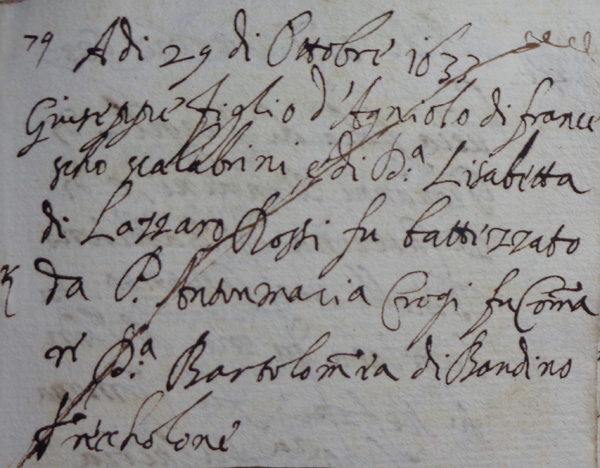 79 Adi 29 di Ottobre 1633
Giuseppe figlio d'Agniolo di france
scho scalabrini, e di D.ª Lisabetta
di Lazzaro Rossi fu battezzato
da P. Antonmaria Crogi fu Coma
re D.ª Bartolomea di Bandino
Frecholone